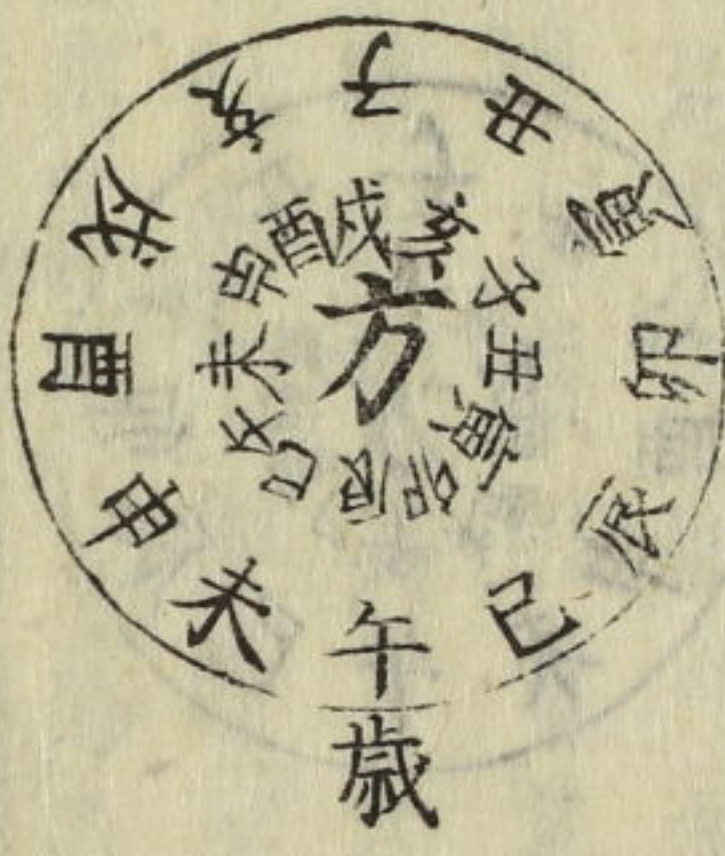 子丑寅卯辰巳午未申酉戌亥
戌亥子丑寅卯辰巳午未申酉
方
歳